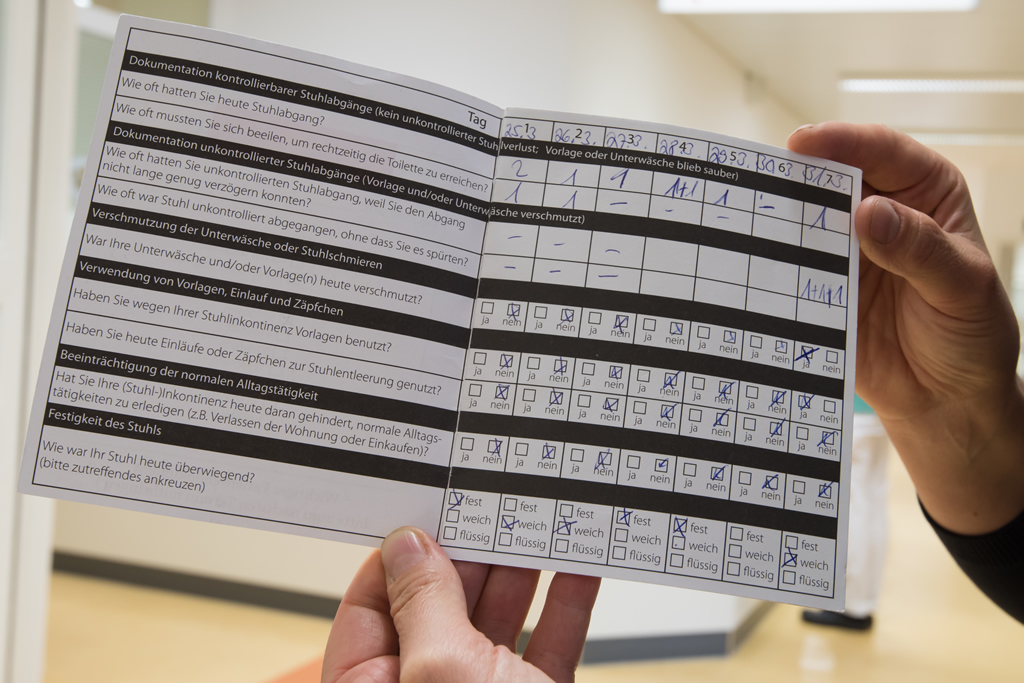 Tag 25.3. 26.3. 27.3. 28.3. 29.3. 30.3. 31.3.
1 2 3 4 5 6 7
Dokumentation kontrollierbarer Stuhlabgänge (kein unkontrollierter Stuhlverlust; Vorlage oder Unterwäsche blieb sauber)
Wie oft hatten Sie heute Stuhlabgang? 2 1 1 1+1 1 – 1
Wie oft mussten Sie sich beeilen, um rechtzeitig die Toilette zu erreichen? 1 1 – – – –
Dokumentation unkontrollierter Stuhlabgänge (Vorlage und/oder Unterwäsche verschmutzt)
Wie oft hatten Sie unkontrollierten Stuhlabgang, weil Sie den Abgang
nicht lange genug verzögern konnten? – – –
Wie oft war Stuhl unkontrolliert abgegangen, ohne dass Sie es spürten? – – – 1+1+1
Verschmutzung der Unterwäsche oder Stuhlschmieren
War Ihre Unterwäsche und/oder Vorlage(n) heute verschmutzt?
ja nein ja nein ja nein ja nein ja nein ja nein ja nein
Verwendung von Vorlagen, Einlauf und Zäpfchen
Haben Sie wegen Ihrer Stuhlinkontinenz Vorlagen benutzt?
ja nein ja nein ja nein ja nein ja nein ja nein ja nein
Haben Sie heute Einläufe oder Zäpfchen zur Stuhlentleerung genutzt?
ja nein ja nein ja nein ja nein ja nein ja nein ja nein
Beeinträchtigung der normalen Alltagstätigkeit
Hat Sie Ihre (Stuhl-)Inkontinenz heute daran gehindert, normale Alltags-
tätigkeiten zu erledigen (z.B. Verlassen der Wohnung oder Einkaufen)?
ja nein ja nein ja nein ja nein ja nein ja nein ja nein
Festigkeit des Stuhls
Wie war Ihr Stuhl heute überwiegend?
(bitte zutreffendes ankreuzen)
fest fest fest fest fest fest fest
weich weich weich weich weich weich weich
flüssig flüssig flüssig flüssig flüssig flüssig flüssig